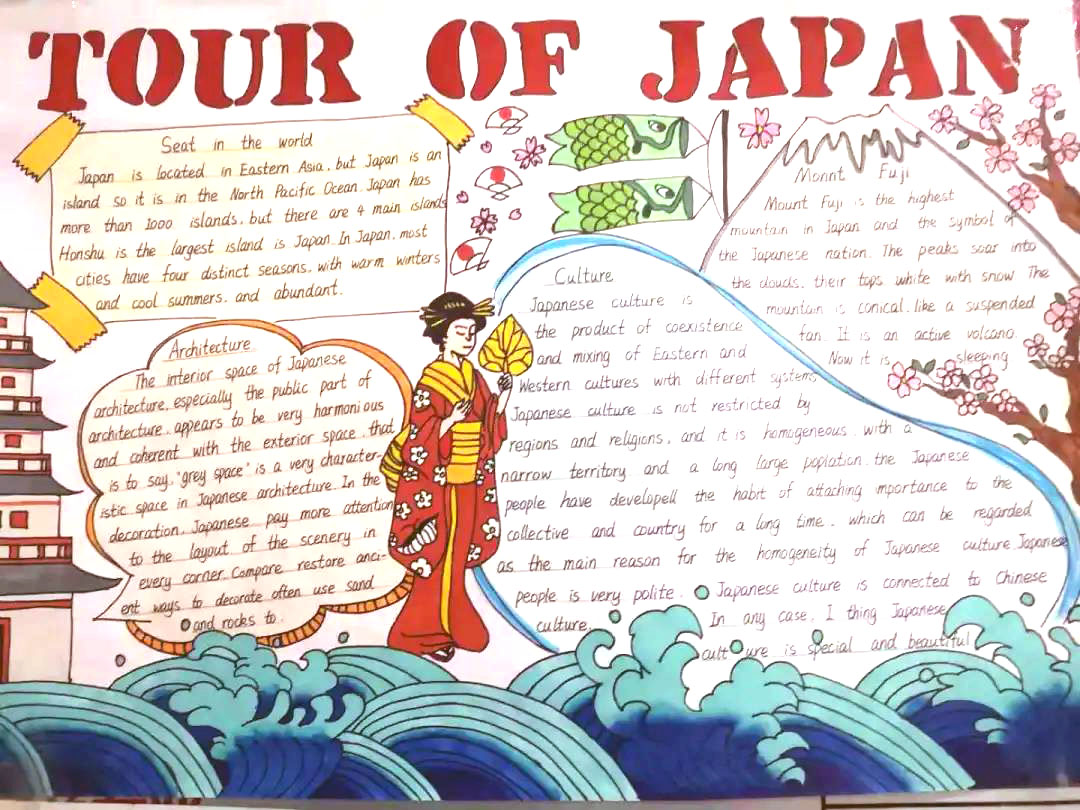 TOUR OF JAPAN
Seat in the world
Japan is located in Eastern Asia, but Japan is an
island so it is in the North Pacific Ocean. Japan has
more than 1000 islands, but there are 4 main islands
Honshu is the largest island is Japan. In Japan, most
cities have four distinct seasons, with warm winters
and cool summers, and abundant.
Architecture
The interior space of Japanese
architecture, especially the public part of
architecture, appears to be very harmonious
and coherent with the exterior space, that
is to say, "grey space" is a very character-
istic space in Japanese architecture. In the
decoration, Japanese pay more attention
to the layout of the scenery in
every corner. Compare restore anci-
ent ways to decorate often use sand
and rocks to.
Culture
Japanese culture is
the product of coexistence
and mixing of Eastern and
Western cultures with different systems,
Japanese culture is not restricted by
regions and religions, and it is homogeneous, with a
narrow territory and a long large poplation. the Japanese
people have developell the habit of attaching importance to the
collective and country for a long time, which can be regarded
as the main reason for the homogeneity of Japanese culture. Japanese
people is very polite. Japanese culture is connected to Chinese
culture. In any case, I thing Japanese
cult ure is special and beautiful
Monnt Fuji
Mount Fuji is the highest
mountain in Japan and the symbol of
the Japanese nation. The peaks soar into
the clouds, their tops white with snow The
mountain is conical, like a suspended
fan. It is an active volcano.
Now it is sleeping